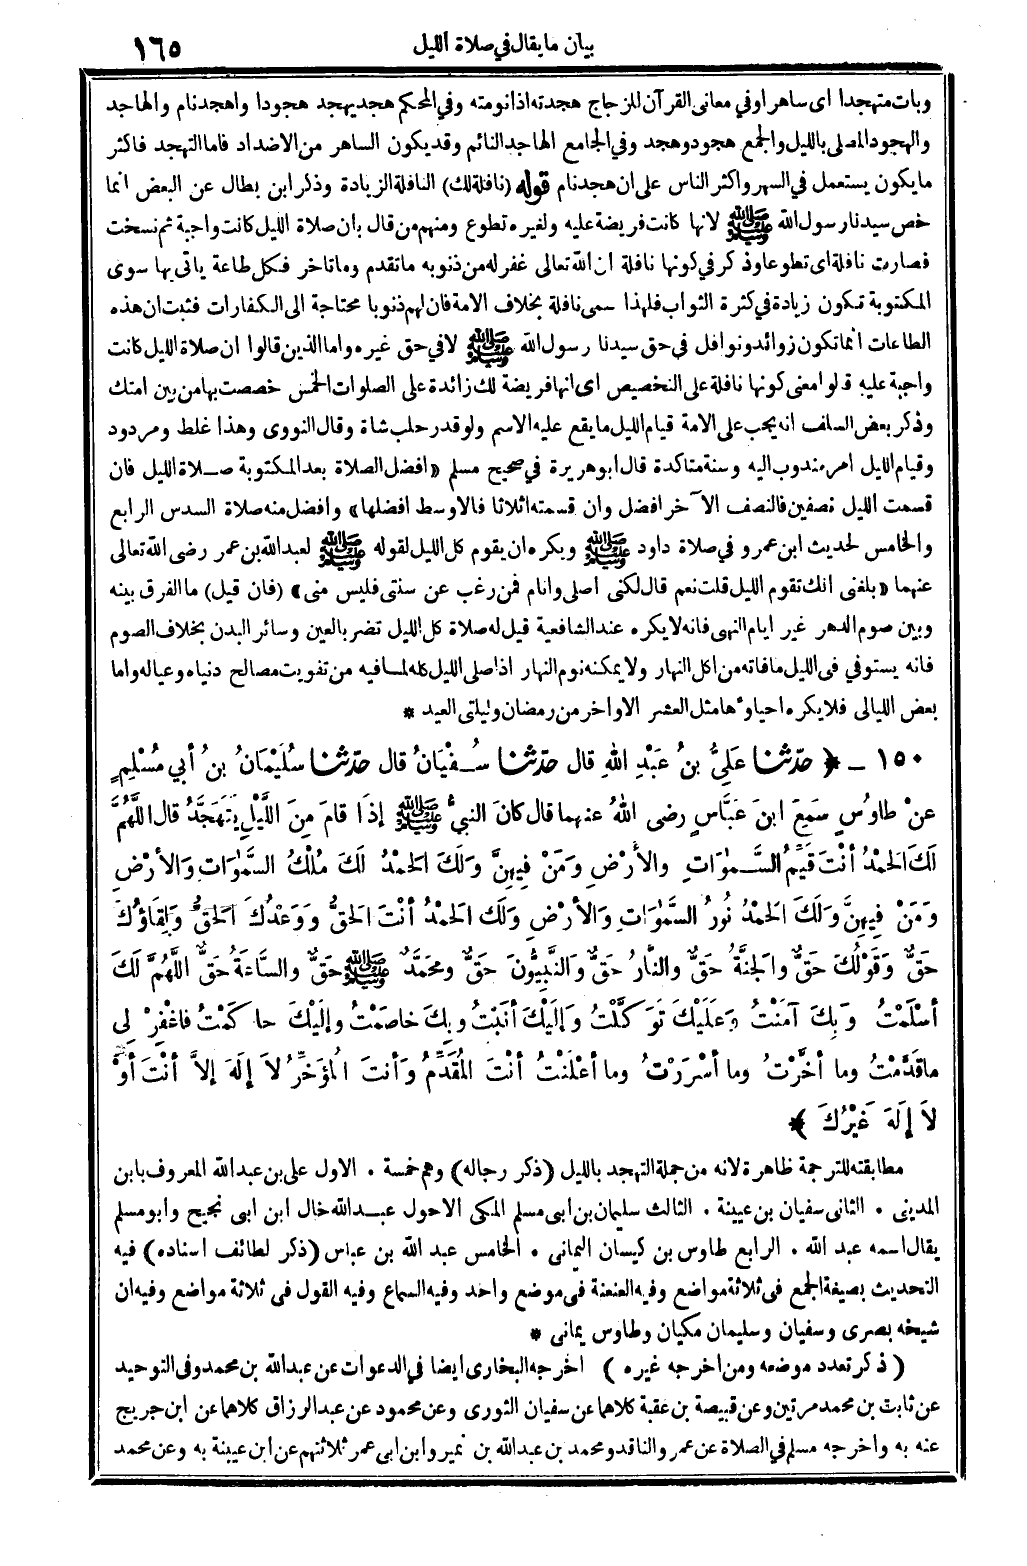 بيان ما يقال في صلاة الليل ١٦٥
وبات متهجدا اى ساهرا وفي معانى القرآن للزجاج هجدته اذا نومته وفي المحكم هجد يهجد هجودا واهجد نام والهاجد
والهجود المصلى بالليل والجمع هجود وهجد وفي الجامع الهاجد النائم وقد يكون الساهر من الاضداد فاما التهجد فاكثر
ما يكون يستعمل في السهر واكثر الناس على ان هجد نام قوله (نافلة لك) النافلة الزيادة وذكر ابن بطال عن البعض انما
خص سيدنا رسول الله ﷺ لانها كانت فريضة عليه ولغيره تطوع ومنهم من قال بان صلاة الليل كانت واجبة ثم نسخت
فصارت نافلة اى تطوعا وذكر في كونها نافلة ان الله تعالى غفر له من ذنوبه ما تقدم وما تاخر فكل طاعة ياتى بها سوى
المكتوبة تكون زيادة في كثرة الثواب فلهذا سمى نافلة بخلاف الامة فان لهم ذنوبا محتاجة الى الكفارات فثبت ان هذه
الطاعات انما تكون زوائد ونوافل في حق سيدنا رسول الله ﷺ لا في حق غيره واما الذين قالوا ان صلاة الليل كانت
واجبة عليه قالوا معنى كونها نافلة على التخصيص اى انها فريضة لك زائدة على الصلوات الخمس خصصت بها من بين امتك
وذكر بعض السلف انه يجب على الامة قيام الليل ما يقع عليه الاسم ولو قدر حلب شاة وقال النووى وهذا غلط ومردود
وقيام الليل امر مندوب اليه وسنة متاكدة قال ابو هريرة في صحيح مسلم «افضل الصلاة بعد المكتوبة صلاة الليل فان
قسمت الليل نصفين فالنصف الآخر افضل وان قسمته اثلاثا فالاوسط افضلها» وافضل منه صلاة السدس الرابع
والخامس لحديث ابن عمرو في صلاة داود ﷺ ويكره ان يقوم كل الليل لقوله ﷺ لعبد الله بن عمر رضى الله تعالى
عنهما «بلغنى انك تقوم الليل قلت نعم قال لكنى اصلى وانام فمن رغب عن سنتى فليس منى» (فان قيل) ما الفرق بينه
وبين صوم الدهر غير ايام النهى فانه لا يكره عند الشافعية قيل له صلاة كل الليل تضر بالعين وسائر البدن بخلاف الصوم
فانه يستوفي فى الليل ما فاته من اكل النهار ولا يمكنه نوم النهار اذا صلى الليل كله لما فيه من تفويت مصالح دنياه وعياله واما
بعض الليالى فلا يكره احياؤها مثل العشر الاواخر من رمضان وليلتى العيد *
١٥٠ ـ ﴿ حدّثنا عَلِيُّ بنُ عَبْدِ اللهِ قال حدّثنا سُفْيَانُ قال حدّثنا سُلَيْمَانُ بنُ أبي مُسْلِمٍ
عنْ طاوُسٍ سَمِعَ ابنَ عَبَّاسٍ رضى اللهُ عنهما قال كانَ النبيُّ ﷺ إذَا قامَ مِنَ اللَّيْلِ يَتَهَجَّدُ قال اللَّهُمَّ
لَكَ الحَمْدُ أنْتَ قَيِّمُ السَّمٰوَاتِ والأَرْضِ وَمَنْ فِيهِنَّ وَلَكَ الحَمْدُ لَكَ مُلْكُ السَّمٰوَاتِ وَالأَرْضِ
وَمَنْ فِيهِنَّ وَلَكَ الحَمْدُ نُورُ السَّمٰوَاتِ وَالأَرْضِ وَلَكَ الحَمْدُ أنْتَ الحَقُّ وَوَعْدُكَ الحَقُّ وَلِقَاؤُكَ
حَقٌّ وَقَوْلُكَ حَقٌّ والجَنَّةُ حَقٌّ والنَّارُ حَقٌّ وَالنَّبِيُّونَ حَقٌّ ومُحَمَّدٌ ﷺ حَقٌّ والسَّاعَةُ حَقٌّ اللَّهُمَّ لَكَ
أسْلَمْتُ وَبِكَ آمَنْتُ وَعَلَيْكَ تَوَكَّلْتُ وَإلَيْكَ أنَبْتُ وبِكَ خاصَمْتُ وإلَيْكَ حاكَمْتُ فاغْفِرْ لِي
ماقَدَّمْتُ وما أخَّرْتُ وما أسْرَرْتُ وما أعْلَنْتُ أنْتَ المُقَدِّمُ وَأنتَ المُؤَخِّرُ لاَ إلَهَ إلاَّ أنْتَ أوْ
لاَ إلَهَ غَيْرُكَ ﴾
مطابقته للترجمة ظاهرة لانه من جملة التهجد بالليل (ذكر رجاله) وهم خمسة . الاول على بن عبد الله المعروف بابن
المدينى . الثانى سفيان بن عيينة . الثالث سليمان بن ابى مسلم المكى الاحول عبد الله خال ابن ابى نجيح وابو مسلم
يقال اسمه عبد الله . الرابع طاوس بن كيسان اليمانى . الخامس عبد الله بن عباس (ذكر لطائف اسناده) فيه
التحديث بصيغة الجمع فى ثلاثة مواضع وفيه العنعنة في موضع واحد وفيه السماع وفيه القول فى ثلاثة مواضع وفيه ان
شيخه بصرى وسفيان وسليمان مكيان وطاوس يمانى *
( ذكر تعدد موضعه ومن اخرجه غيره ) اخرجه البخارى ايضا في الدعوات عن عبد الله بن محمد وفى التوحيد
عن ثابت بن محمد مرتين وعن قبيصة بن عقبة كلاهما عن سفيان الثورى وعن محمود عن عبد الرزاق كلاهما عن ابن جريج
عنه به واخرجه مسلم في الصلاة عن عمرو الناقد ومحمد بن عبد الله بن نمير وابن ابى عمر ثلاثتهم عن ابن عيينة به وعن محمد